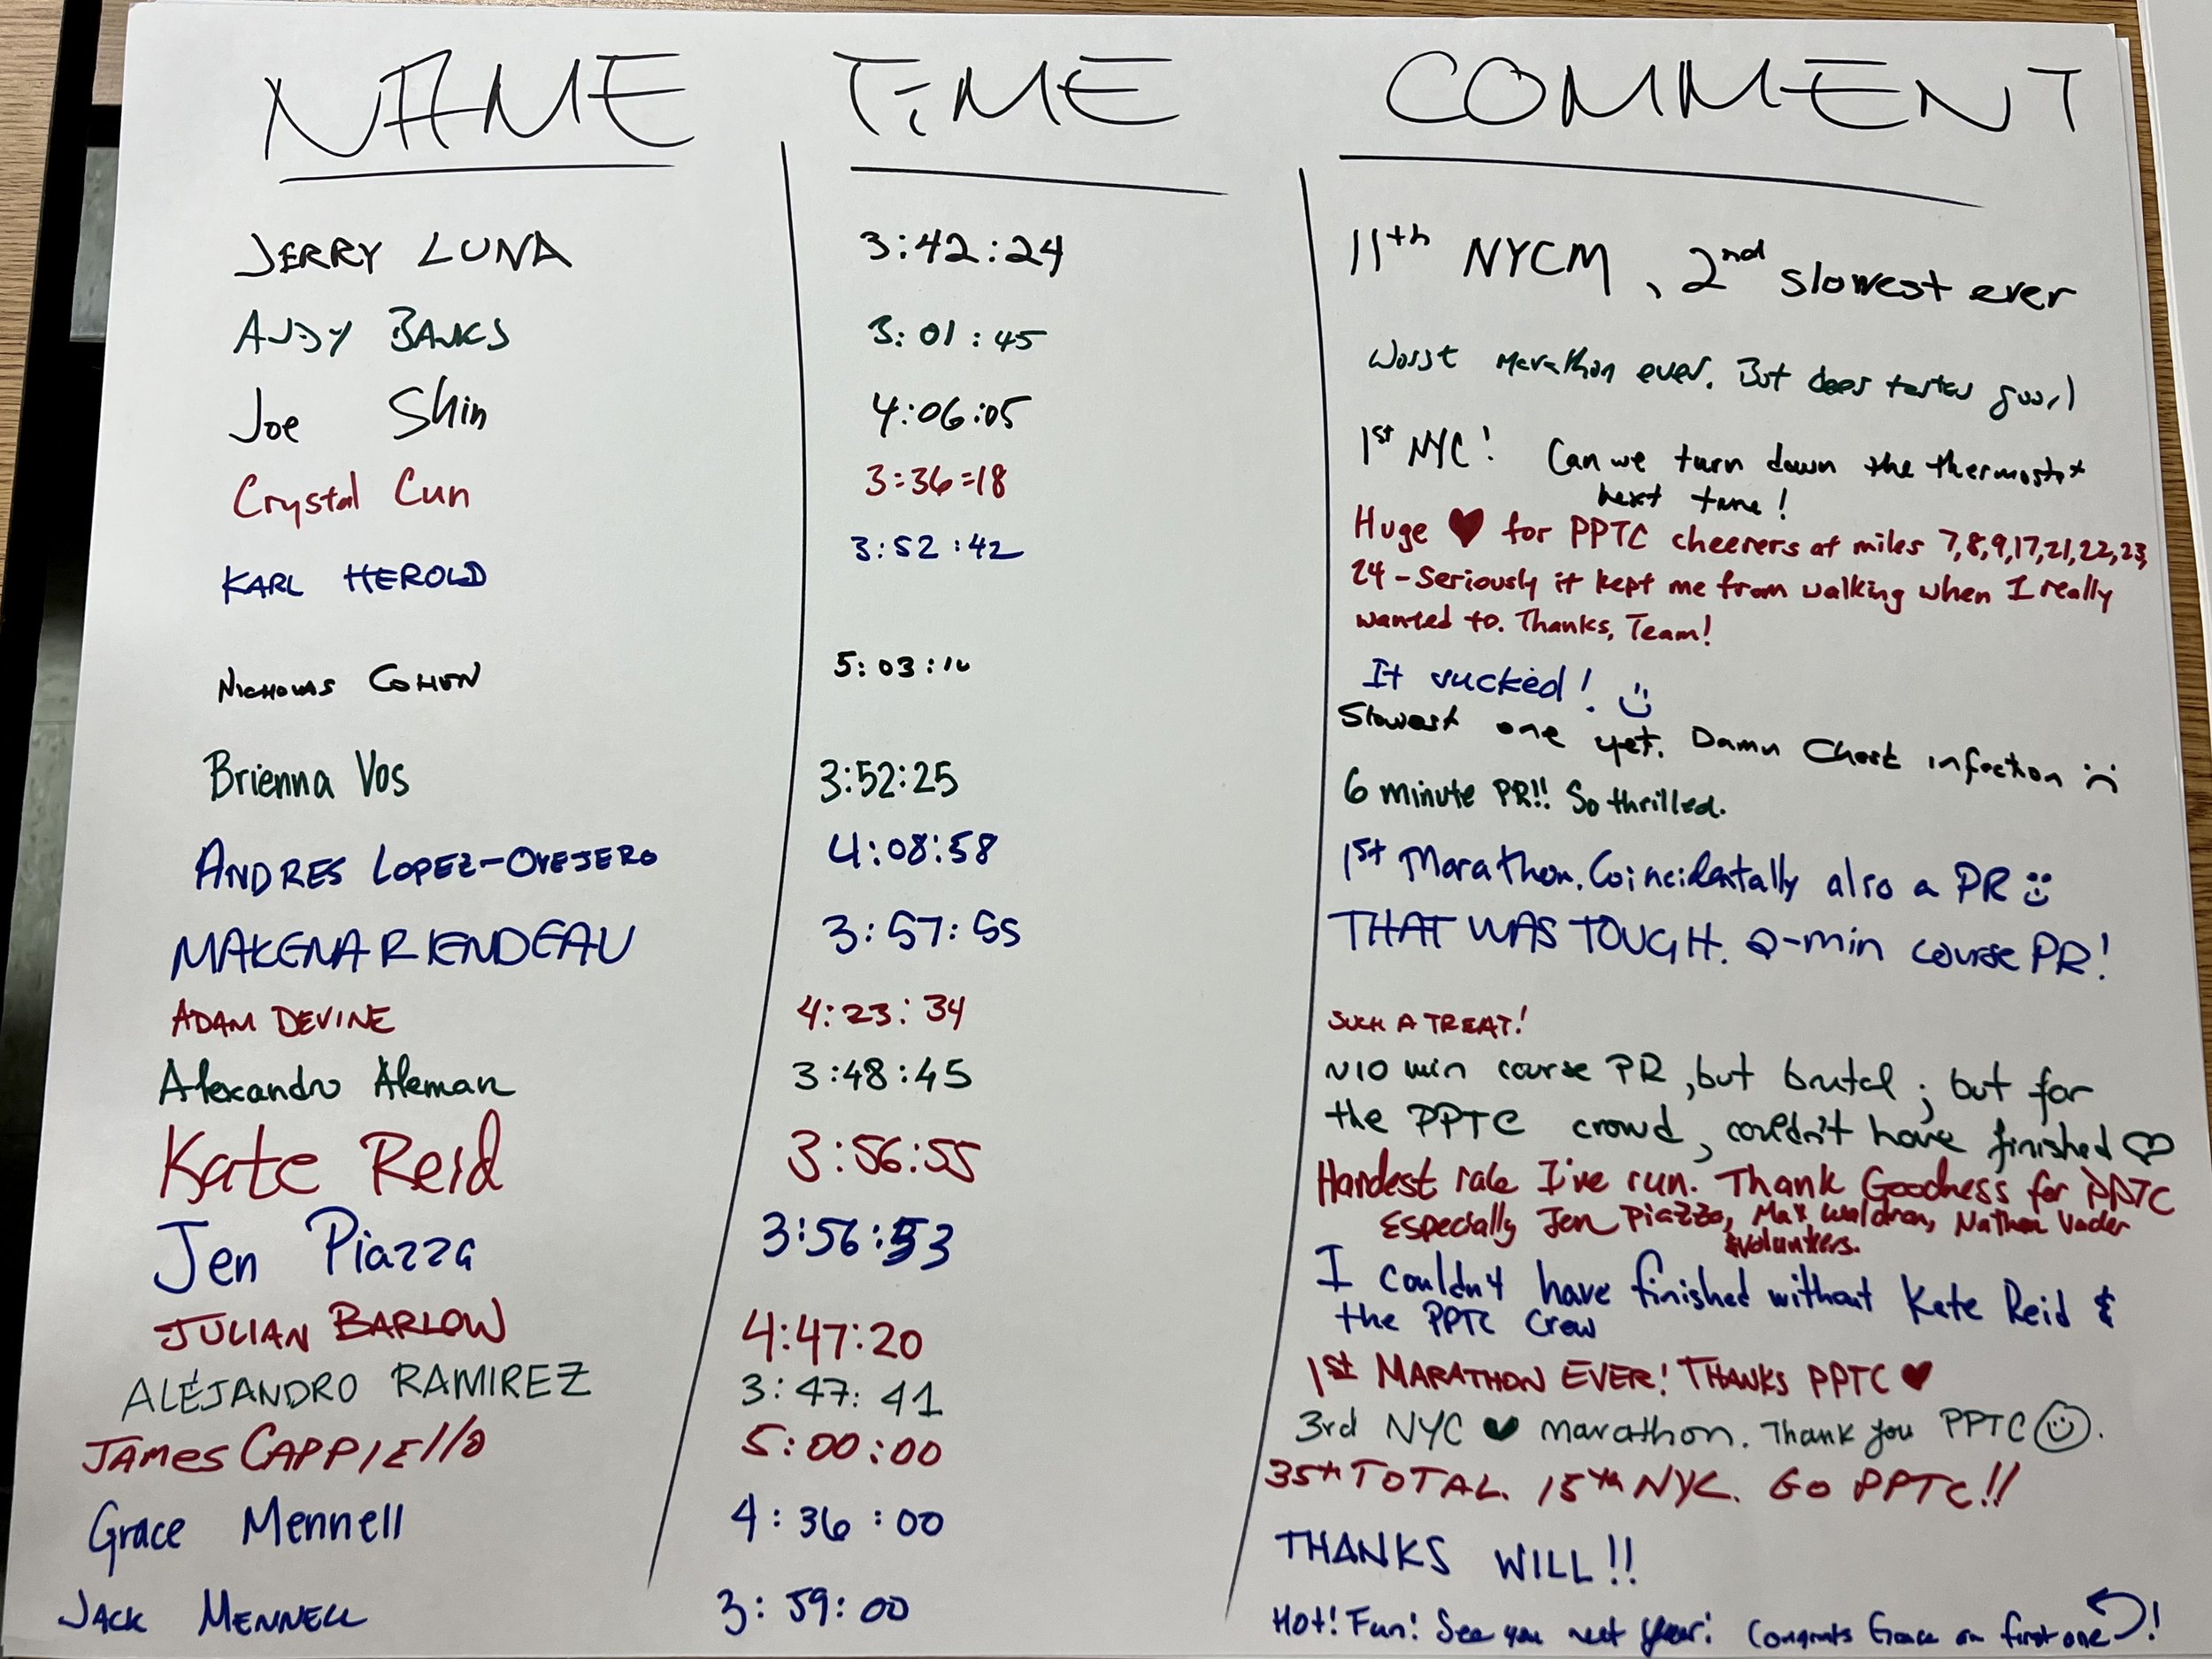 NAME TiME COMMENT
JERRY LUNA 3:42:24 11th NYCM, 2nd slowest ever
ANDY BANKS 3:01:45 Worst marathon ever. But beer tastes good
Joe Shin 4:06:05 1st NYC! Can we turn down the thermostat
next time!
Crystal Cun 3:36:18 Huge ♥ for PPTC cheerers at miles 7,8,9,17,21,22,23,
24 - Seriously it kept me from walking when I really
wanted to. Thanks, Team!
KARL HEROLD 3:52:42 It sucked! :)
NICHOLAS COHEN 5:03:10 Slowest one yet. Damn Chest infection :(
Brienna Vos 3:52:25 6 minute PR!! So thrilled.
ANDRES LOPEZ-OVEJERO 4:08:58 1st Marathon. Coincidentally also a PR :)
MAKENA RIENDEAU 3:57:55 THAT WAS TOUGH. 2-min course PR!
ADAM DEVINE 4:23:34 SUCH A TREAT!
Alexandro Aleman 3:48:45 ~10 min course PR, but brutal; but for
the PPTC crowd, couldn't have finished ♡
Kate Reid 3:56:55 Hardest race I've run. Thank Goodness for PPTC
Especially Jen Piazza, Max Waldron, Nathan Vader
& volunteers.
Jen Piazza 3:56:53 I couldn't have finished without Kate Reid &
the PPTC Crew
JULIAN BARLOW 4:47:20 1st MARATHON EVER! THANKS PPTC ♥
ALEJANDRO RAMIREZ 3:47:41 3rd NYC ♥ marathon. Thank you PPTC ☺.
JAMES CAPPIEllo 5:00:00 35th TOTAL. 15th NYC. GO PPTC!!
Grace Mennell 4:36:00 THANKS WILL!!
JACK MENNELL 3:59:00 Hot! Fun! See you next year! Congrats Grace on first one!